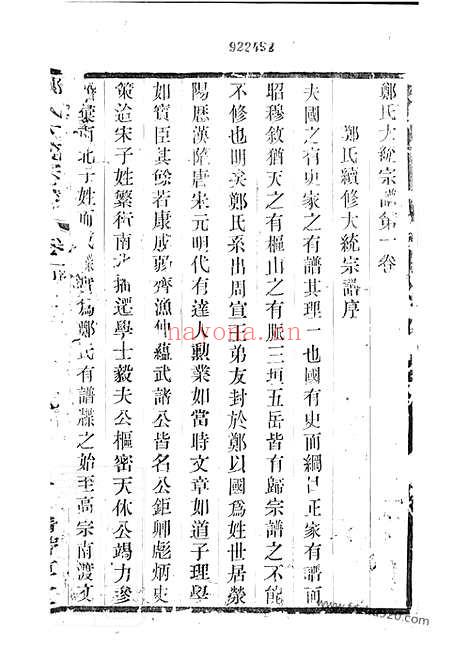 922452
鄭氏大統宗譜第一卷
鄭氏續修大統宗譜序
夫國之有史家之有譜其理一也國有史而綱目正家有譜而
昭穆敘猶天之有樞山之有脈三垣五岳皆有歸宗譜之不能
不修也明矣鄭氏系出周宣王弟友封於鄭以國為姓世居滎
陽歷漢隋唐宋元明代有達人勳業如當時文章如道子理學
如實臣其餘若康成弱齊漁仲蘊武諸公皆名公鉅卿彪炳史
策迨宋子姓繁衍南北播遷學士毅夫公樞密天休公竭力參
南北子姓而為鄭氏有譜牒之始至高宗南渡文
nayona.cn